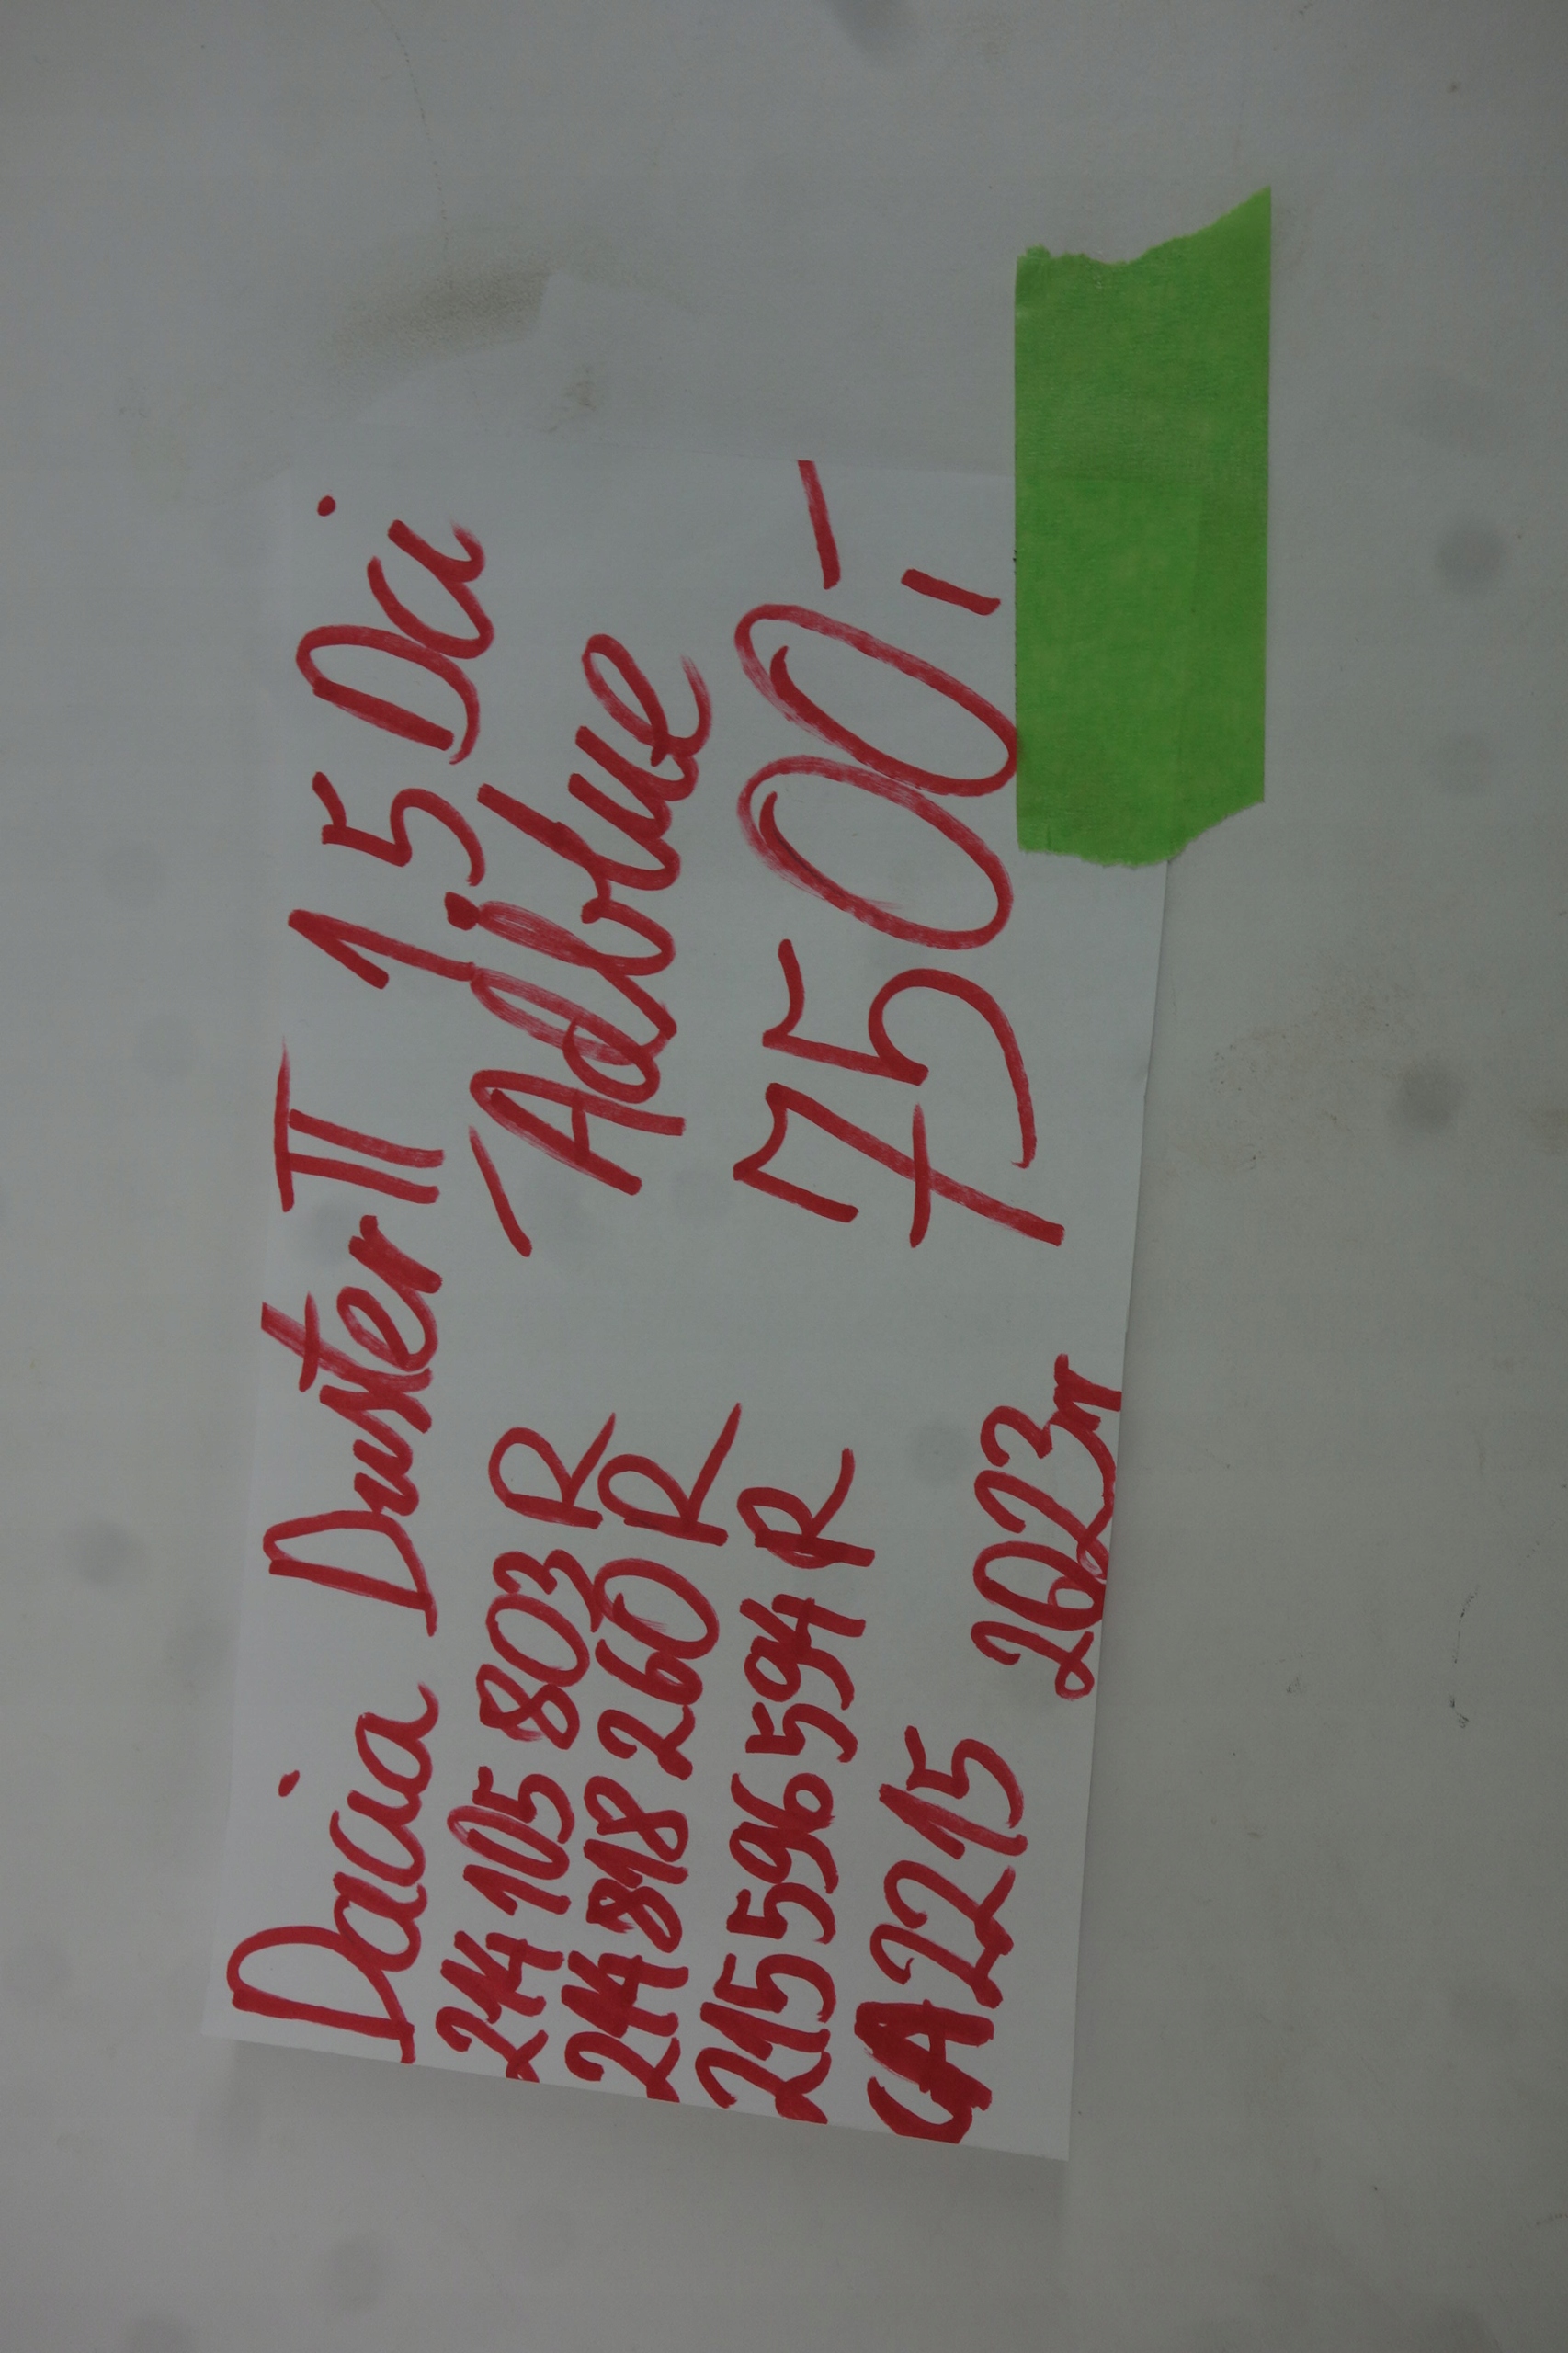 Dacia Duster II 1.5 Dci
244105803R - Adblue
244818260R
215596594R 7500,-
CA2215 2023r